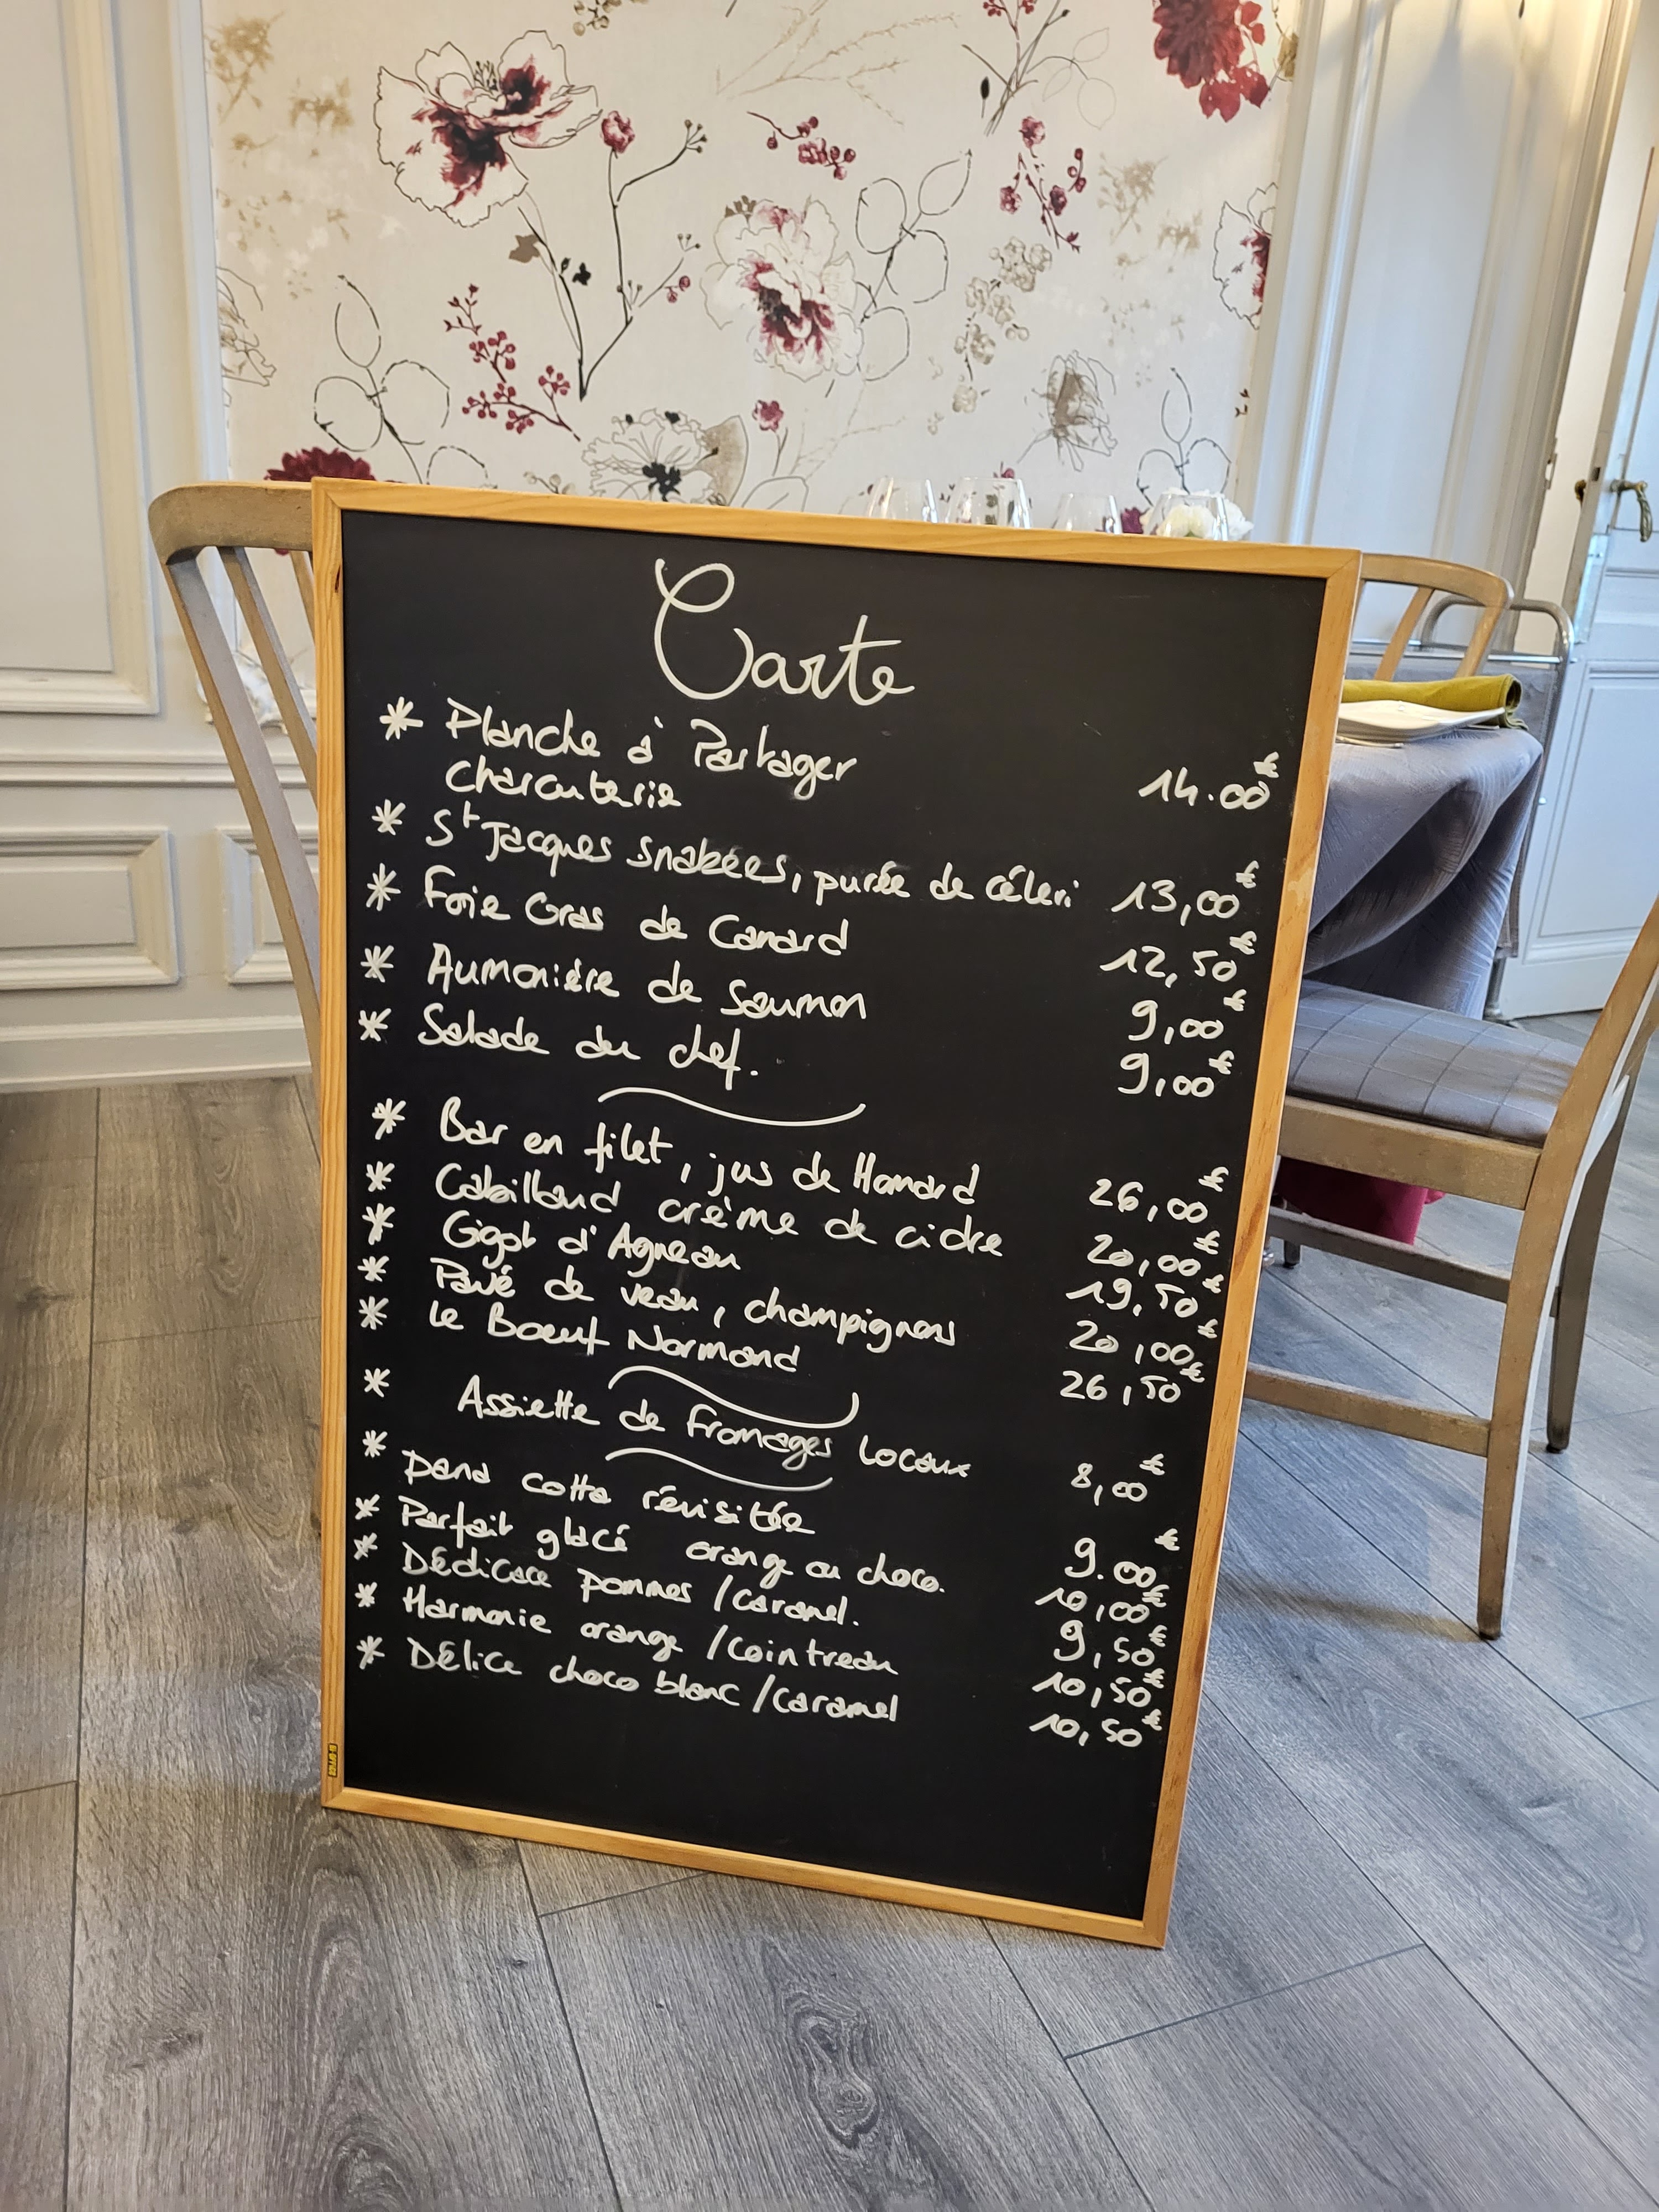 Carte
* Planche à Partager
charcuterie 14.00€
* St Jacques snakées, purée de céleri 13,00€
* Foie Gras de Canard 12,50€
* Aumonière de Saumon 9,00€
* Salade du chef. 9,00€
* Bar en filet, jus de Homard 26,00€
* Cabillaud crème de cidre 20,00€
* Gigot d'Agneau 19,50€
* Pavé de veau, champignons 20,00€
* Le Boeuf Normand 26,50€
* Assiette de fromages Locaux 8,00€
* Pana cotta révisitée 9.00€
* Parfait glacé orange ou choco. 10,00€
* Dédicace pommes/Caramel. 9,50€
* Harmonie orange/Cointreau 10,50€
* Délice choco blanc/Caramel 10,50€